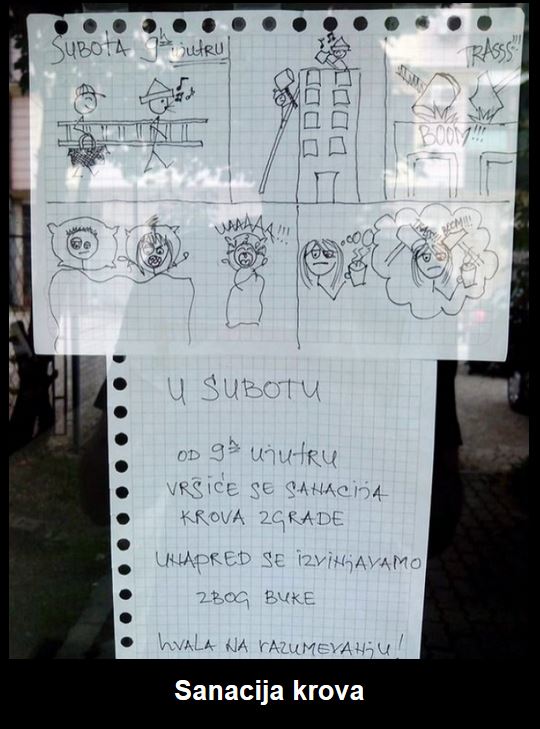 SUBOTA 9h ujutru
TRASSS!!!
BOOM!!!
UAAAAA!!!
BOOM!!!
U SUBOTU
OD 9h UJUTRU
VRŠIĆE SE SANACIJA
KROVA ZGRADE
UNAPRED SE IZVINJAVAMO
ZBOG BUKE
HVALA NA RAZUMEVANJU!
Sanacija krova